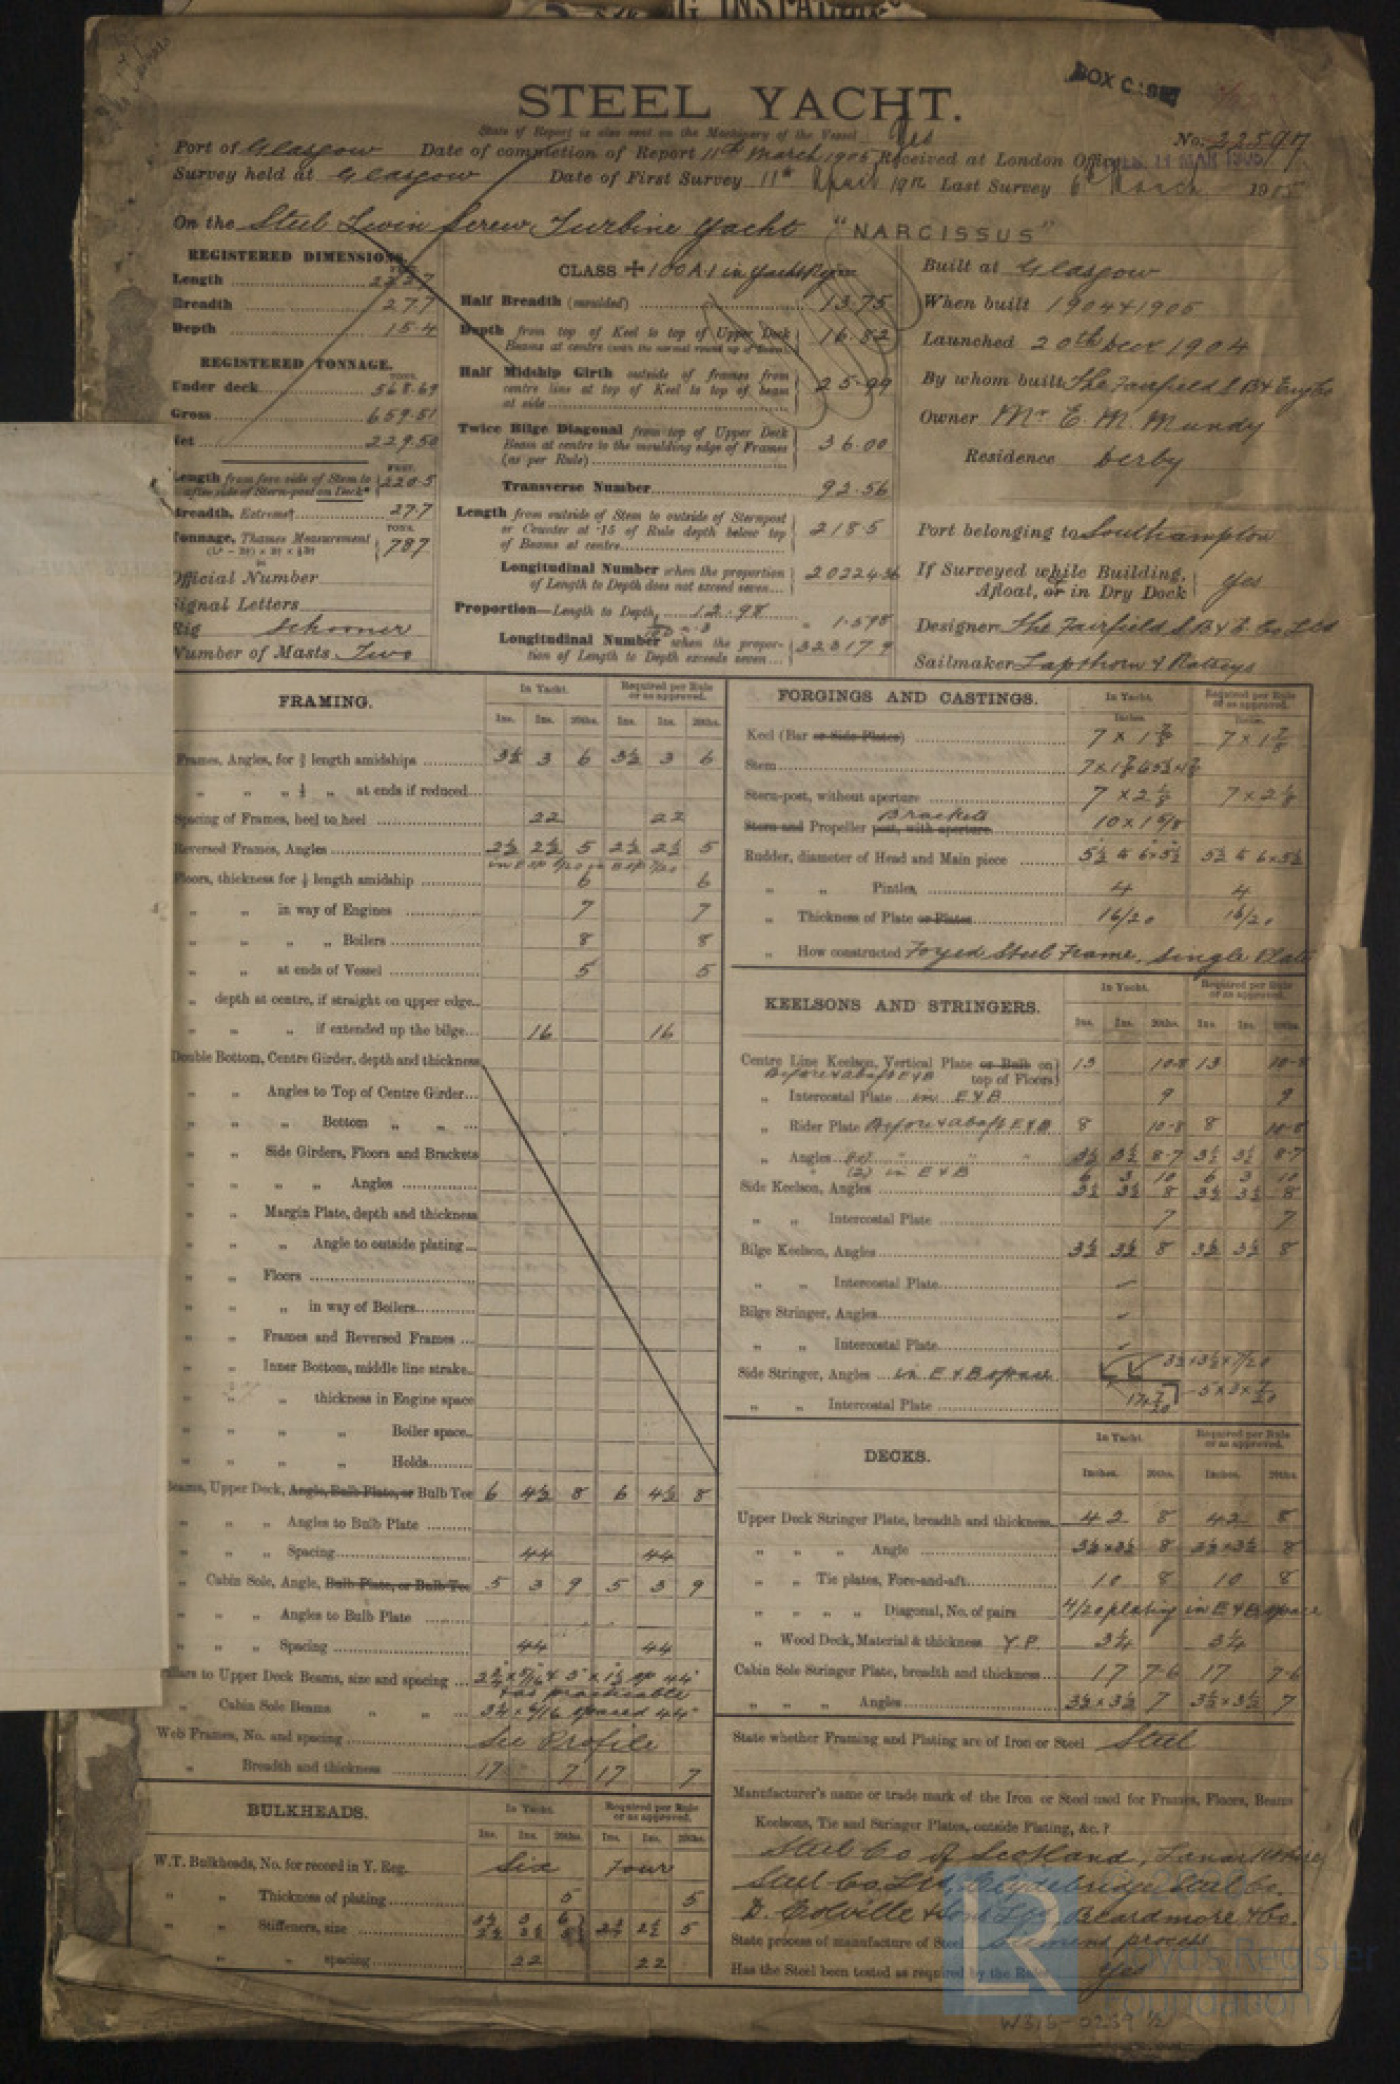 STEEL YACHT.
BOX C
State of Report is also sent on the Machinery of the Vessel Yes
No. 22597
Port of Glasgow Date of completion of Report 11th March 1905 Received at London Office
Survey held at Glasgow Date of First Survey 11th April Last Survey 6th March 1905
On the Steel Twin Screw Turbine Yacht "NARCISSUS"
REGISTERED DIMENSIONS.
Length
Breadth 27.7
Depth 15.4
REGISTERED TONNAGE.
Under deck 568.69
Gross 659.51
Net 229.50
Length from fore side of Stem to after side of Stern-post on Deck 220.5
Breadth, Extreme 27.7
Tonnage, Thames Measurement 787
Official Number
Signal Letters
Rig Schooner
Number of Masts Two
CLASS ✠ 100A1 in Yacht Reg
Half Breadth (moulded) 13.75
Depth from top of Keel to top of Upper Deck Beams at centre 16.82
Half Midship Girth outside of frames from centre line at top of Keel to top of beam at side 25.99
Twice Bilge Diagonal from top of Upper Deck Beam at centre to the moulding edge of Frames (as per Rule) 36.00
Transverse Number 92.56
Length from outside of Stem to outside of Sternpost or Counter at .15 of Rule depth below top of Beams at centre 218.5
Longitudinal Number when the proportion of Length to Depth does not exceed seven 20224.36
Proportion—Length to Depth 12.98
1.598
Longitudinal Number when the proportion of Length to Depth exceeds seven 32317.9
Built at Glasgow
When built 1904 & 1905
Launched 20th Decr 1904
By whom built The Fairfield S.B & Eng Co
Owner Mr E. M. Mundy
Residence Derby
Port belonging to Southampton
If Surveyed while Building, Afloat, or in Dry Dock Yes
Designer The Fairfield S.B & E. Co Ltd
Sailmaker Lapthorn & Ratseys
FRAMING.
In Yacht. Required per Rule or as approved.
Ins. Ins. 20ths. Ins. Ins. 20ths.
Frames, Angles, for ⅗ length amidships 3½ 3 6 3½ 3 6
" " " " at ends if reduced
Spacing of Frames, heel to heel 22 22
Reversed Frames, Angles 2½ 2½ 5 2½ 2½ 5
Floors, thickness for ½ length amidship 6 6
" " in way of Engines 7 7
" " " " Boilers 8 8
" " at ends of Vessel 5 5
" depth at centre, if straight on upper edge
" " " if extended up the bilge 16 16
Double Bottom, Centre Girder, depth and thickness
" " Angles to Top of Centre Girder
" " " Bottom " "
" " Side Girders, Floors and Brackets
" " " " Angles
" " Margin Plate, depth and thickness
" " " Angle to outside plating
" " Floors
" " " in way of Boilers
" " Frames and Reversed Frames
" " Inner Bottom, middle line strake
" " " thickness in Engine space
" " " " Boiler space
" " " " Holds
Beams, Upper Deck, Angle, Bulb Plate, or Bulb Tee 6 4½ 8 6 4½ 8
" " " Angles to Bulb Plate
" " " Spacing 44 44
" Cabin Sole, Angle, Bulb Plate, or Bulb Tee 5 3 9 5 3 9
" " " Angles to Bulb Plate
" " " Spacing 44 44
Pillars to Upper Deck Beams, size and spacing
as practicable
" Cabin Sole Beams " " spaced 44"
Web Frames, No. and spacing See Profile
" Breadth and thickness 17 7 17 7
BULKHEADS.
In Yacht. Required per Rule or as approved.
Ins. Ins. 20ths. Ins. Ins. 20ths.
W.T. Bulkheads, No. for record in Y. Reg. Six Four
" " Thickness of plating 5 5
" " Stiffeners, size 2½ 2½ 5
" " spacing 22 22
FORGINGS AND CASTINGS.
In Yacht. Required per Rule or as approved.
Inches. Inches.
Keel (Bar or Side Plates) 7 × 1⅞ 7 × 1⅞
Stem
Stern-post, without aperture 7 × 2⅛ 7 × 2⅛
Brackets
Stern and Propeller post, with aperture 10 × 1⅝
Rudder, diameter of Head and Main piece 5½ & 6×5½ 5½ & 6×5½
" " Pintles 4 4
" Thickness of Plate or Plates 16/20 16/20
" How constructed Forged Steel Frame, Single Plate
KEELSONS AND STRINGERS.
In Yacht. Required per Rule or as approved.
Ins. Ins. 20ths. Ins. Ins. 20ths.
Centre Line Keelson, Vertical Plate or Bulb on top of Floors 13 10-8 13 10-8
Before & abaft E & B
" Intercostal Plate in E & B 9 9
" Rider Plate Before & abaft E & B 8 10-8 8 10-8
" Angles " " " 3½ 3½ 8-7 3½ 3½ 8-7
" (2) in E & B 6 3 10 6 3 10
Side Keelson, Angles 3½ 3½ 8 3½ 3½ 8
" " Intercostal Plate 7 7
Bilge Keelson, Angles 3½ 3½ 8 3½ 3½ 8
" " Intercostal Plate
Bilge Stringer, Angles
" " Intercostal Plate
Side Stringer, Angles in E & B space 3½×3½×7/20
" " Intercostal Plate 17×7/20 5×3×7/20
DECKS.
In Yacht. Required per Rule or as approved.
Inches. 20ths. Inches. 20ths.
Upper Deck Stringer Plate, breadth and thickness 42 8 42 8
" " " Angle 3½×3½ 8 3½×3½ 8
" " Tie plates, Fore-and-aft 10 8 10 8
" " " " Diagonal, No. of pairs 4/20 plating in E & B space
" Wood Deck, Material & thickness Y.P. 3¼ 3¼
Cabin Sole Stringer Plate, breadth and thickness 17 7-6 17 7-6
" " " Angles 3½×3½ 7 3½×3½ 7
State whether Framing and Plating are of Iron or Steel Steel
Manufacturer's name or trade mark of the Iron or Steel used for Frames, Floors, Beams
Keelsons, Tie and Stringer Plates, outside Plating, &c.?
Steel Co of Scotland, Lanarkshire
Steel Co. Ltd, Clydebridge Steel Co.
D. Colville & Sons Ltd, Beardmore & Co.
State process of manufacture of Steel Siemens process
Has the Steel been tested as required by the Rules Yes
Lloyd's Register
Foundation
W315-0239 ½